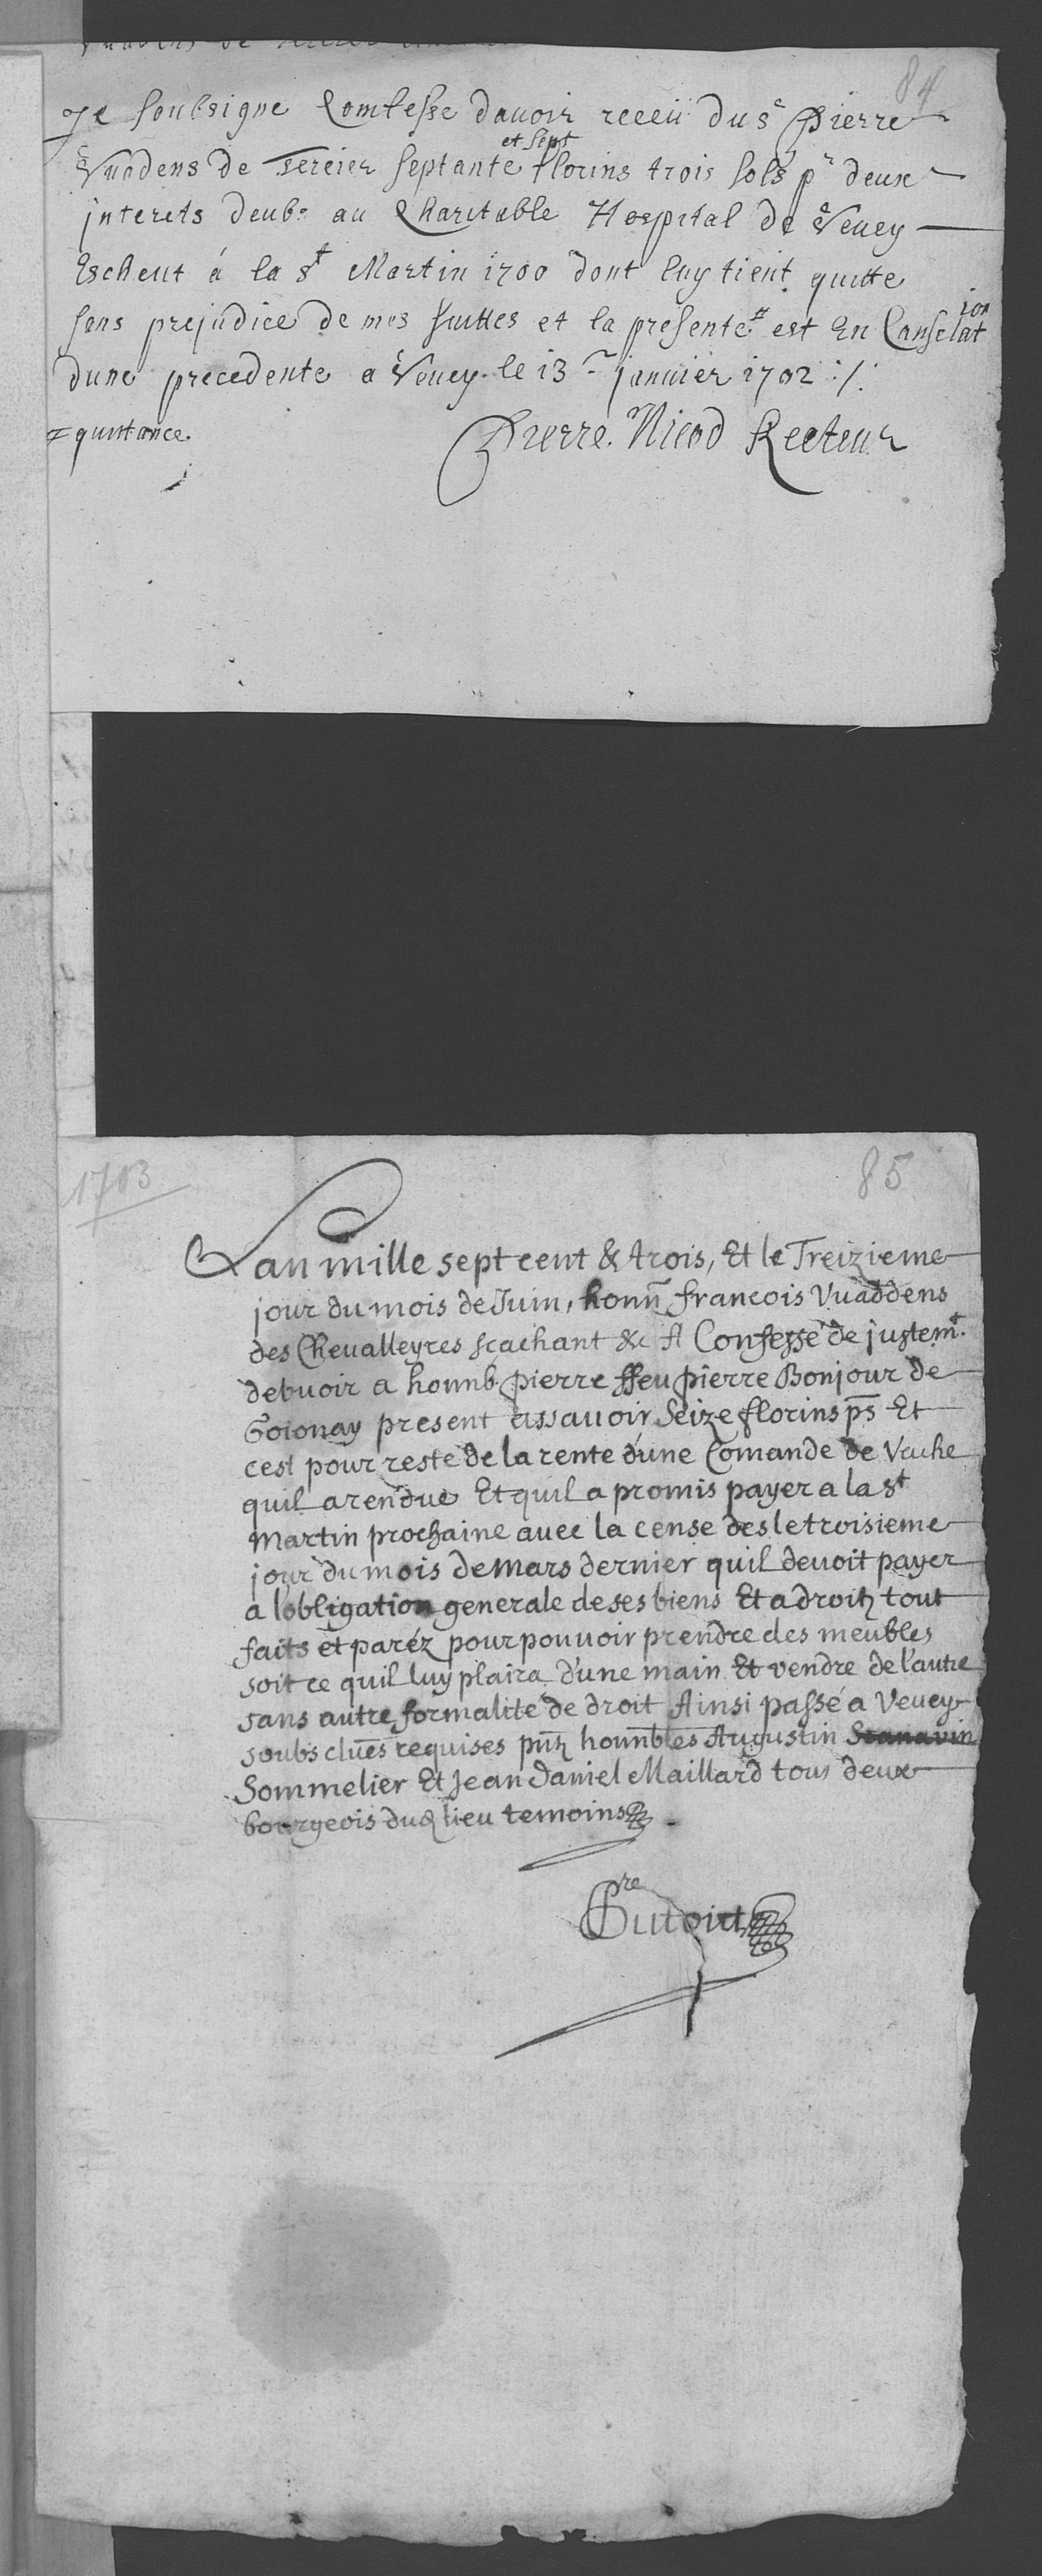 84
Je soubsigne Comfesse dauoir receü du sr Pierre
Vuadens de Tercier septante et sept florins trois sols pr deux
interets deubs au Charitable Hospital de Veuey
Escheut á la st Martin 1700 dont luy tient quitte
sens prejudice de mes suittes et la presente # est En Canselation
dune precedente a Veuey le 13r januier 1702 ./.
# quittance
Pierre Nicod Recteur
1703
85
Lan mille sept cent & trois, Et le Treizieme
jour du mois de Juin, honn francois Vuaddens
des Cheualleyres scachant &c A Confessé de justemt
debuoir a honnb. pierre ffeu pierre Bonjour de
present assauoir Seize florins ps Et
cest pour reste de la rente d'une Comande de Vache
quil a rendue Et quil a promis payer a la st
Martin prochaine auec la cense des le troisieme
jour du mois de Mars dernier quil deuoit payer
a lobligation generale de ses biens Et a droitz tout
faits et paréz pour pouuoir prendre des meubles
soit ce quil luy plaira d'une main Et vendre de l'autre
sans autre formalité de droit Ainsi passé a Veuey
soubs clues requises pntz honnbles Augustin
Sommelier Et Jean Daniel Maillard tous deux
bourgeois dud lieu temoins
Pre Dutoict